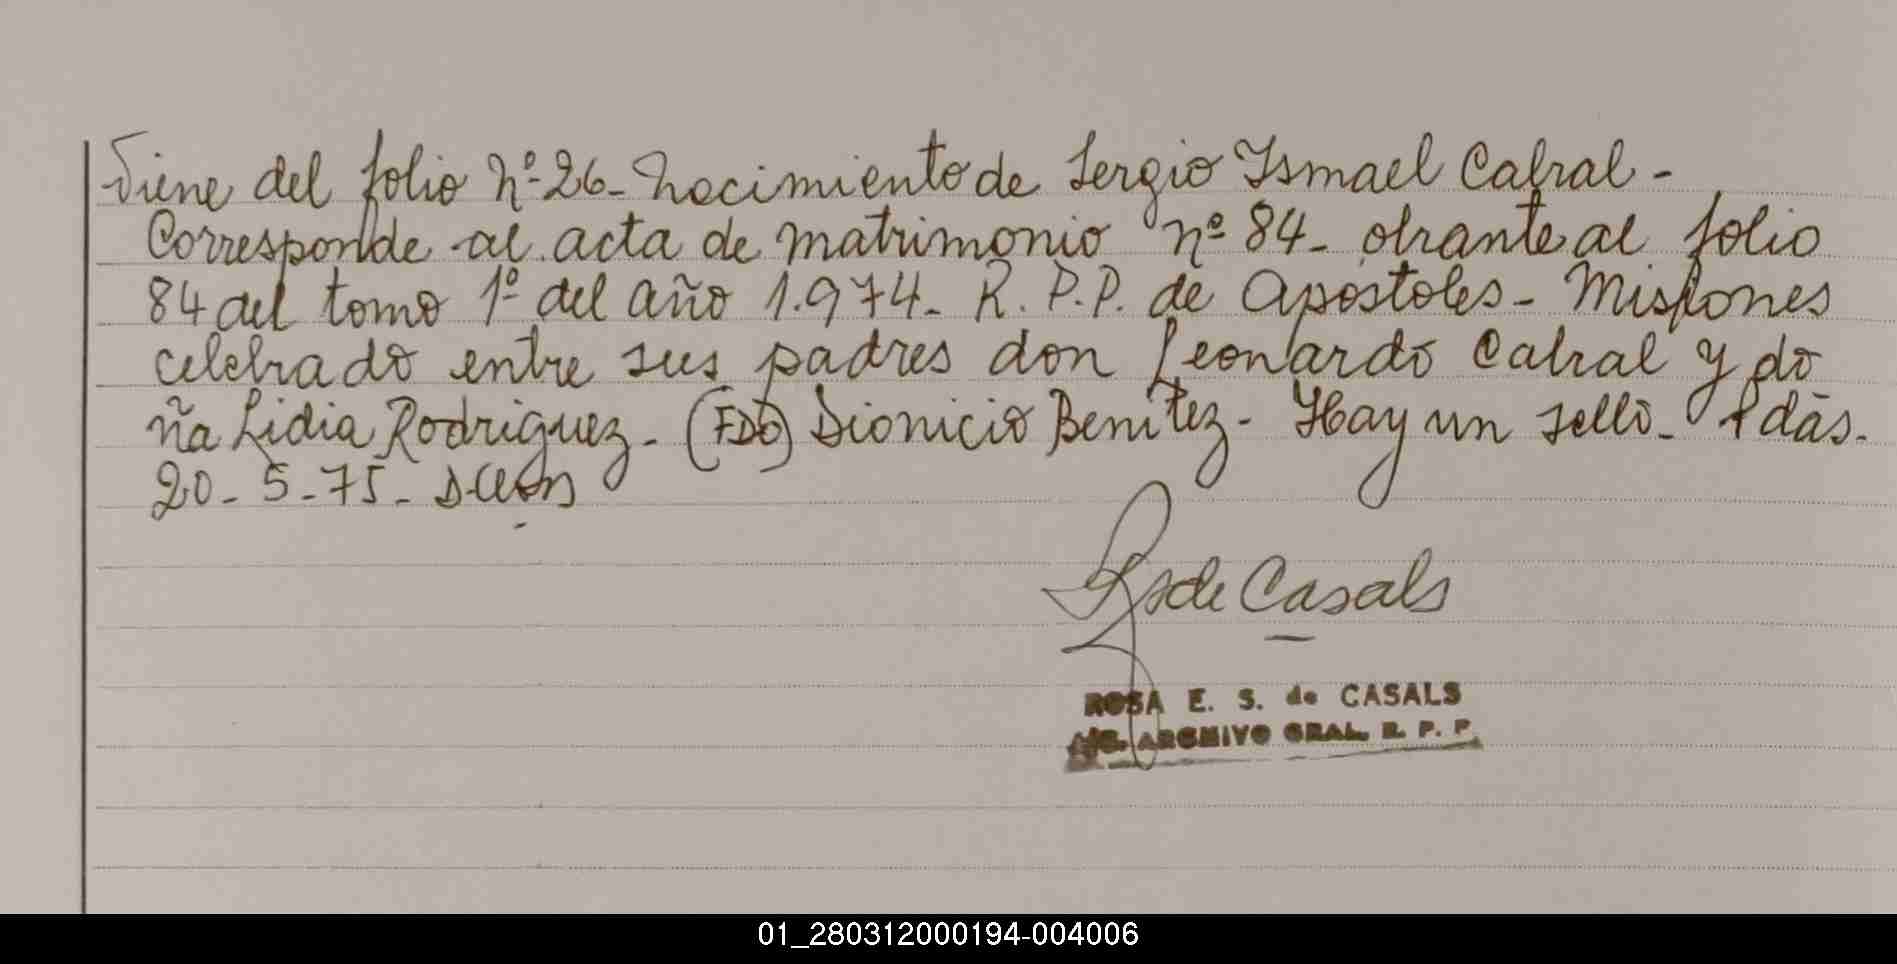 Viene del folio Nº 26 - Nacimiento de Sergio Ismael Cabral -
Corresponde al acta de matrimonio nº 84 - obrante al folio
84 del tomo 1º del año 1.974 - R. P. P. de Apostoles - Misiones
celebrado entre sus padres don Leonardo Cabral y do
ña Lidia Rodriguez - (FDO) Dionicio Benitez - Hay un sello - Pdas.
20 - 5 - 75 -
de Casals
ROSA E. S. de CASALS
A/C. ARCHIVO GRAL. R. P. P.
01_280312000194-004006